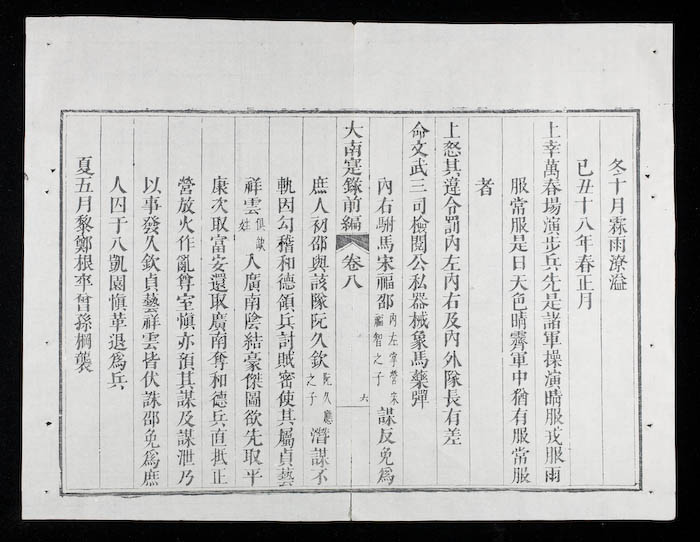 冬十月霖雨潦溢
己丑十八年春正月
上幸萬春場演步兵先是諸軍操演晴服戎服雨
服常服是日天色晴霽軍中猶有服常服
者
上怒其違令罰內左內右及內外隊長有差
命文武三司檢閱公私器械象馬藥彈
內右駙馬宋福邵內左掌營宋福智之子謀反免爲
大南寔錄前編 卷八 六
庶人初邵與該隊阮久欽阮久應之子潛謀不
軌因勾稽和德領兵討賊密使其屬貞藝
祥雲俱缺姓入廣南陰結豪傑圖欲先取平
康次取富安還取廣南奪和德兵直抵正
營放火作亂尊室慎亦預其謀及謀泄乃
以事發久欽貞藝祥雲皆伏誅邵免爲庶
人囚于八凱園慎革退爲兵
夏五月黎鄭根率曾孫棡襲